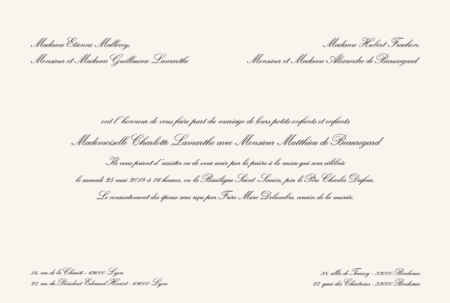 Madame Etienne Malleray,
Monsieur et Madame Guillaume Lamarthe
Madame Hubert Frachon,
Monsieur et Madame Alexandre de Beauregard
ont l'honneur de vous faire part du mariage de leurs petits-enfants et enfants
Mademoiselle Charlotte Lamarthe avec Monsieur Matthieu de Beauregard
Ils vous prient d'assister ou de vous unir par la prière à la messe qui sera célébrée
le samedi 25 mai 2018 à 16 heures, en la Basilique Saint-Seurin, par le Père Charles Dufour.
Le consentement des époux sera reçu par Frère Marc Delisombre, cousin de la mariée.
54, rue de la Charité - 69000 Lyon
22, rue du Président Edouard Herriot - 69000 Lyon
38, allées de Tourny - 33000 Bordeaux
22, quai des Chartrons - 33000 Bordeaux